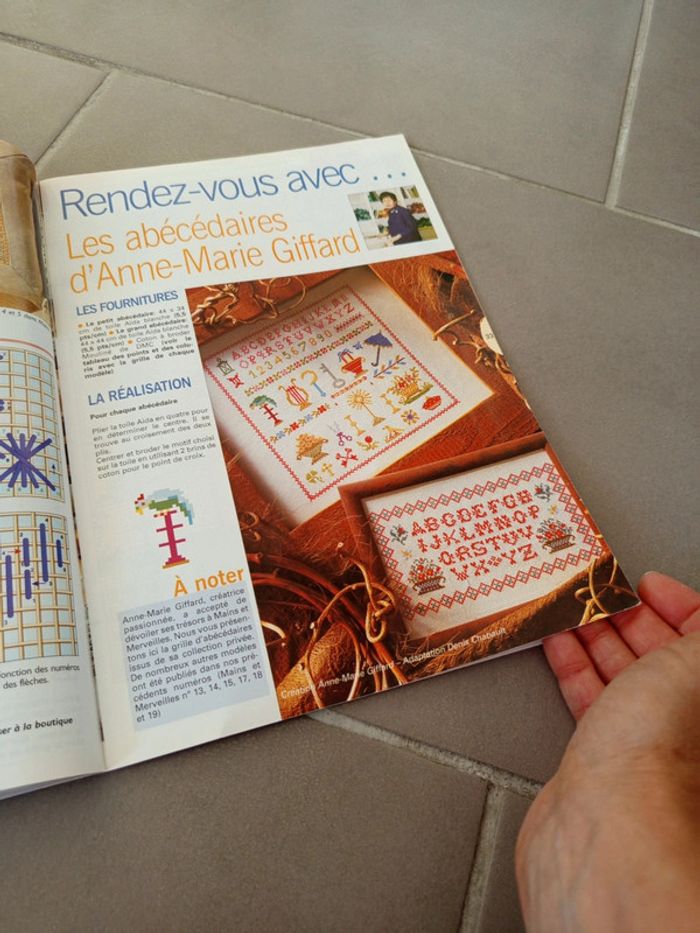 Rendez-vous avec ...
Les abécédaires
d'Anne-Marie Giffard
LES FOURNITURES
● Le petit abécédaire: 44 x 34
cm de toile Aïda blanche (5,5
pts/cm) ● Le grand abécédaire:
44 x 44 cm de toile Aïda blanche
(5,5 pts/cm) ● Coton à broder
Mouliné de DMC (voir le
tableau des points et des colo-
ris avec la grille de chaque
modèle)
LA RÉALISATION
Pour chaque abécédaire
Plier la toile Aïda en quatre pour
en déterminer le centre. Il se
trouve au croisement des deux
plis.
Centrer et broder le motif choisi
sur la toile en utilisant 2 brins de
coton pour le point de croix.
À noter
Anne-Marie Giffard, créatrice
passionnée, a accepté de
dévoiler ses trésors à Mains et
Merveilles. Nous vous présen-
tons ici la grille d'abécédaires
issus de sa collection privée.
De nombreux autres modèles
ont été publiés dans nos pré-
cédents numéros (Mains et
Merveilles n° 13, 14, 15, 17, 18
et 19)
ABCDEFGH
IJKLMNOP
QRSTUV
WXYZ
1234567890
Création Anne-Marie Giffard – Adaptation Denis Chabault
4 et 5 dans
fonction des numéros
des flèches.
er à la boutique